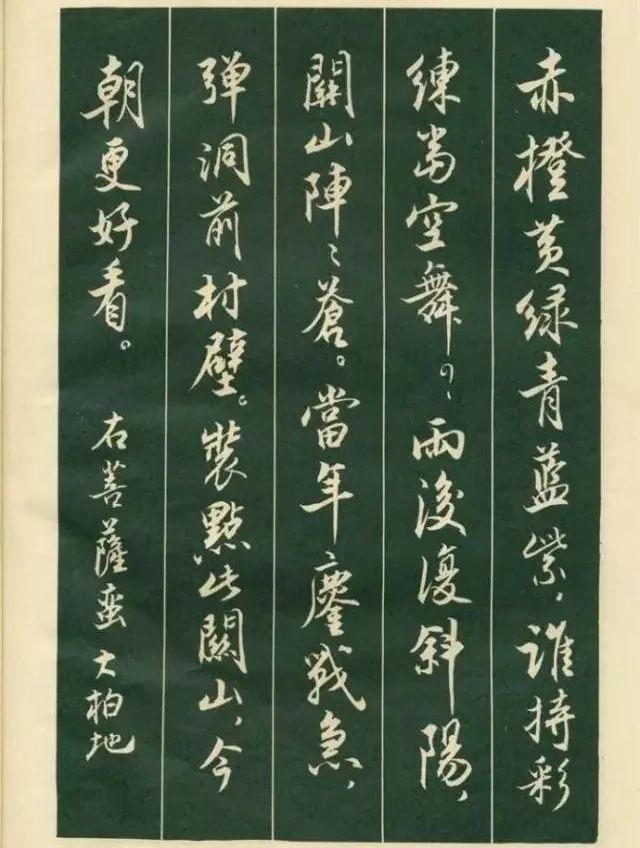 赤橙黄绿青蓝紫，谁持彩
练当空舞？雨後復斜陽，
關山陣〻蒼。當年鏖戰急，
弹洞前村壁。裝點此關山，今
朝更好看。
右菩薩蛮 大柏地